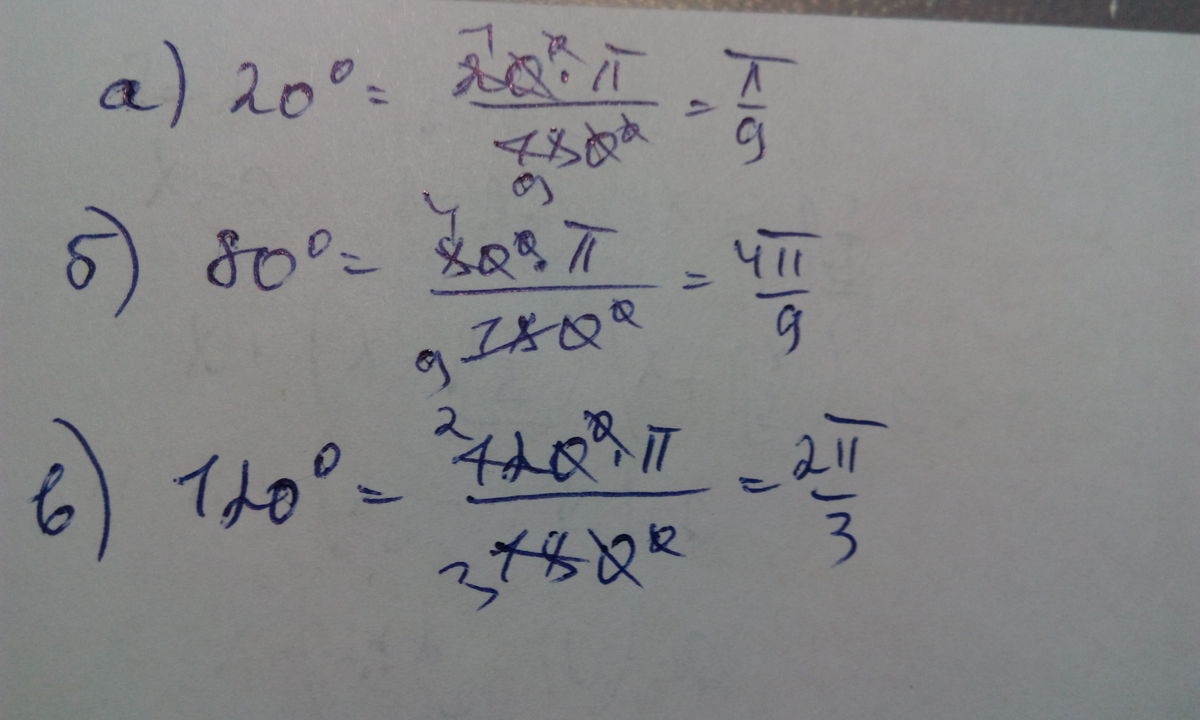 а) 20° = 20°·π / 180° = π / 9
б) 80° = 80°·π / 180° = 4π / 9
в) 120° = 120°·π / 180° = 2π / 3